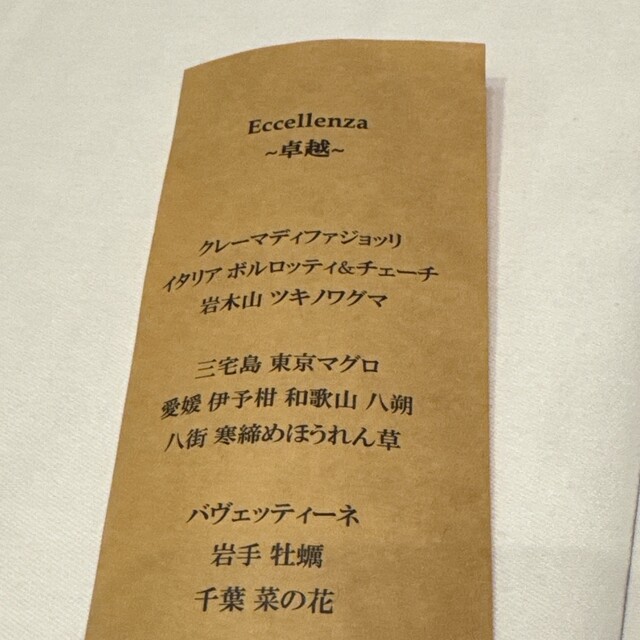 Eccellenza
~卓越~
クレーマディファジョッリ
イタリア ボルロッティ&チェーチ
岩木山 ツキノワグマ
三宅島 東京マグロ
愛媛 伊予柑 和歌山 八朔
八街 寒締めほうれん草
バヴェッティーネ
岩手 牡蠣
千葉 菜の花